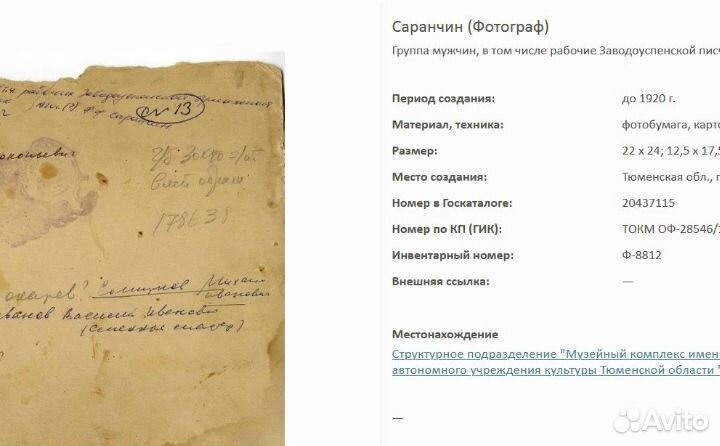 рабочих Заводоуспенской
Ф Ф Саранчин
N 13
178638
Семенов Михаил
Иванович
Иванов Василий Иванович
Саранчин (Фотограф)
Группа мужчин, в том числе рабочие Заводоуспенской писч
Период создания: до 1920 г.
Материал, техника: фотобумага, карто
Размер: 22 x 24; 12,5 x 17,5
Место создания: Тюменская обл., г
Номер в Госкаталоге: 20437115
Номер по КП (ГИК): ТОКМ ОФ-28546/1
Инвентарный номер: Ф-8812
Внешняя ссылка: —
Местонахождение
Структурное подразделение "Музейный комплекс имен
автономного учреждения культуры Тюменской области "
—
Avito